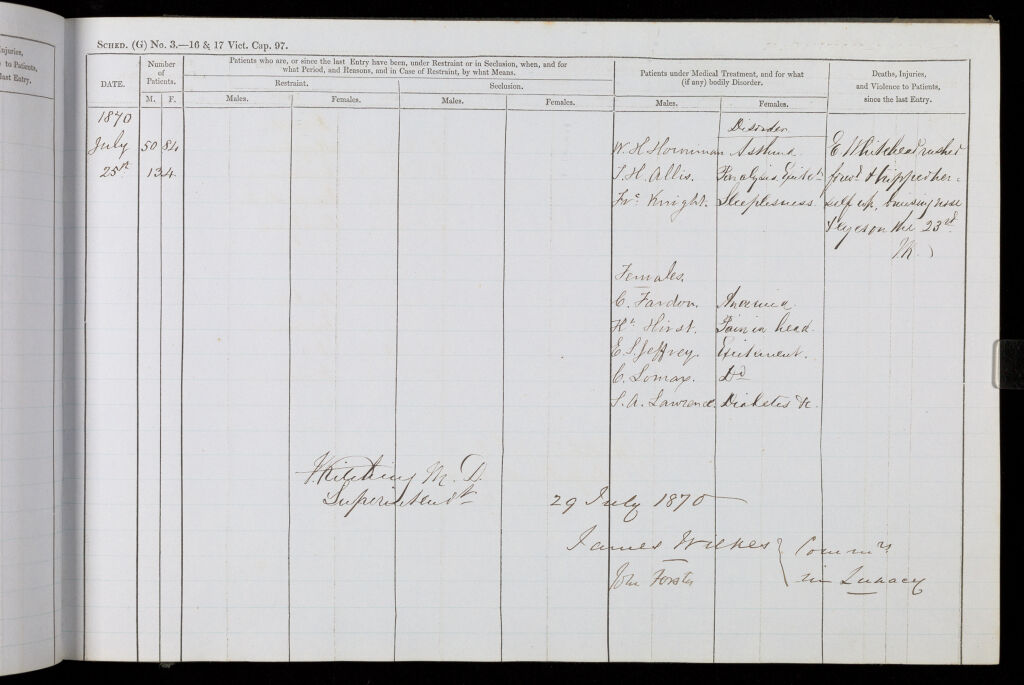 njuries,
e to Patients,
last Entry.
SCHED. (G) No. 3.—16 & 17 Vict. Cap. 97.
DATE.
Number
of
Patients.
M. F.
Patients who are, or since the last Entry have been, under Restraint or in Seclusion, when, and for
what Period, and Reasons, and in Case of Restraint, by what Means.
Restraint. Seclusion.
Males. Females. Males. Females.
Patients under Medical Treatment, and for what
(if any) bodily Disorder.
Males. Females.
Deaths, Injuries,
and Violence to Patients,
since the last Entry.
1870
Disorder
July 50 84 W. H. Horniman Asthma E Whitehead rushed
25st 134 S. H. Allis. Paralysis, forwd & tripped her-
Frs Knight. Sleeplesness. self up, bruising nose
& eyes on the 23rd
JK
Females.
C. Fardon. Anaemia.
Ht Hirst. Pain in head.
E S. Jeffrey. Excitement.
C. Lomax. Do
S. A. Lawrence. Diabetis &c.
J Kitching M. D.
Superintendt
29 July 1870
James Wilkes } Commrs
John Forster in Lunacy